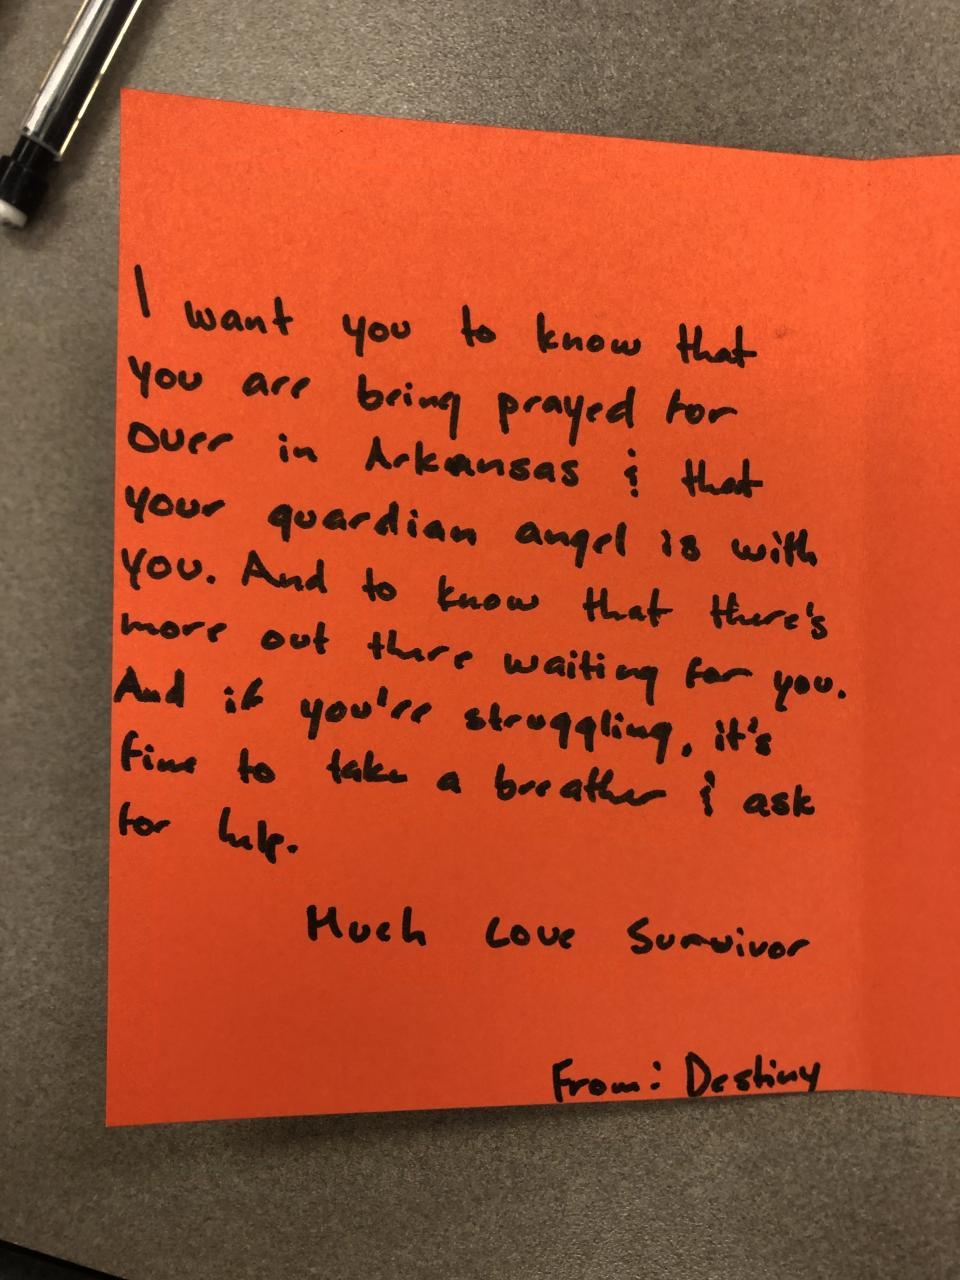 I want you to know that
you are being prayed for
over in Arkansas & that
your guardian angel is with
you. And to know that there's
more out there waiting for you.
And if you're struggling, it's
fine to take a breather & ask
for help.
Much Love Survivor
From: Destiny